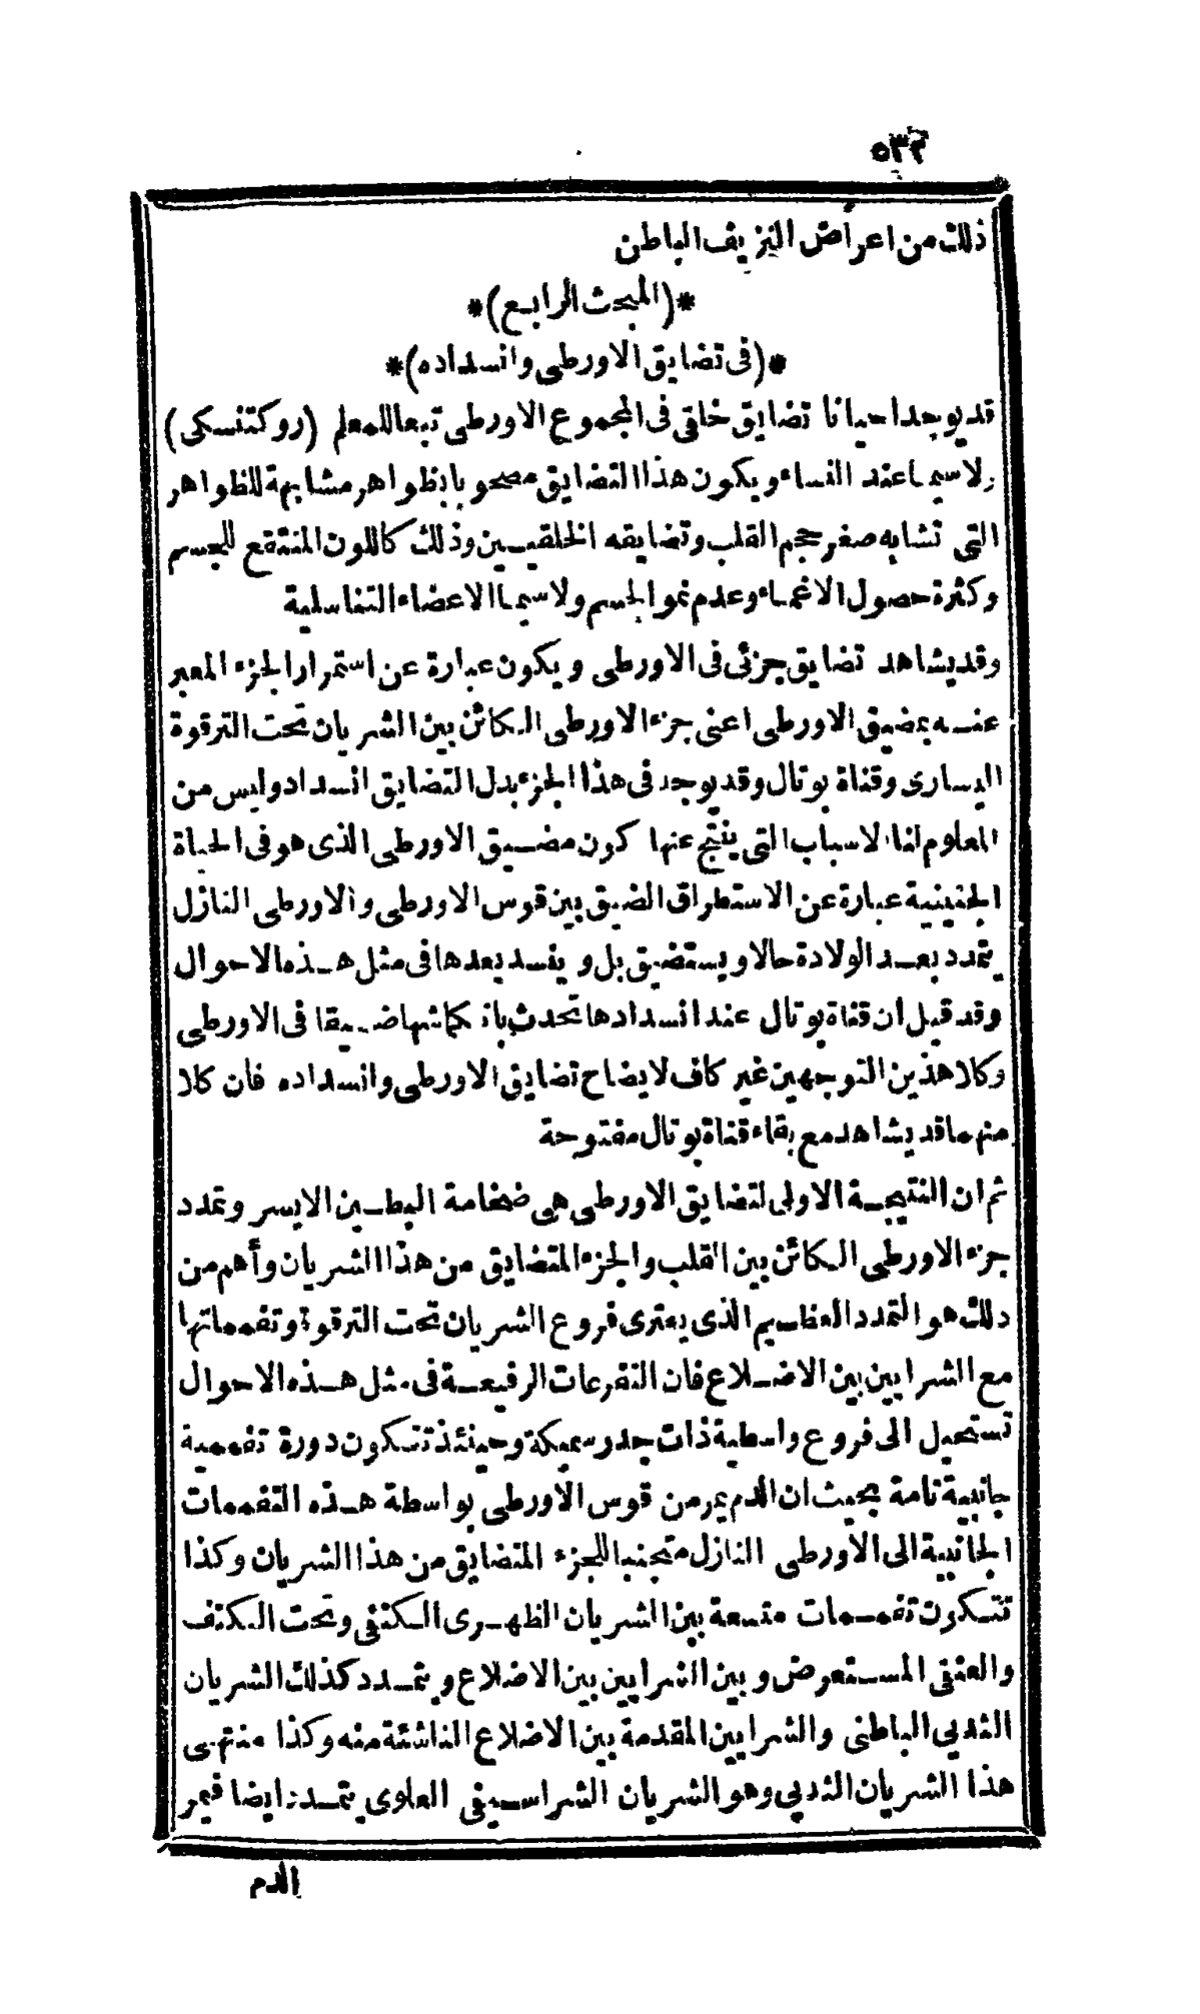 ٥٣٢
ذلك من اعراض النزيف الباطن
*(المبحث الرابع)*
*(فى تضايق الاورطى وانسداده)*
قد يوجد احيانا تضايق خلقى فى المجموع الاورطى تبعا للمعلم (روكتنسكى)
ولاسيما عند النساء ويكون هذا التضايق مصحوبا بظواهر مشابهة للظواهر
التى تشابه صغر حجم القلب وتضايقه الخلقيين وذلك كاللون المنتقع للجسم
وكثرة حصول الاغماء وعدم نمو الجسم ولاسيما الاعضاء التناسلية
وقد يشاهد تضايق جزئى فى الاورطى ويكون عبارة عن استمرار الجزء المعبر
عنه بمضيق الاورطى اعنى جزء الاورطى الكائن بين الشريان تحت الترقوة
اليسارى وقناة بوتال وقد يوجد فى هذا الجزء بدل التضايق انسداد وليس من
المعلوم لنا الاسباب التى ينتج عنها كون مضيق الاورطى الذى هو فى الحياة
الجنينية عبارة عن الاستطراق الضيق بين قوس الاورطى والاورطى النازل
يتمدد بعد الولادة حالا ويستضيق بل وينسد بعدها فى مثل هذه الاحوال
وقد قيل ان قناة بوتال عند انسدادها تحدث بانكماشها ضيقا فى الاورطى
وكلا هذين التوجهين غير كاف لايضاح تضايق الاورطى وانسداده فان كلا
منهما قد يشاهد مع بقاء قناة بوتال مفتوحة
ثم ان النتيجة الاولى لتضايق الاورطى هى ضخامة البطين الايسر وتمدد
جزء الاورطى الكائن بين القلب والجزء المتضايق من هذا الشريان وأهم من
ذلك هو التمدد العظيم الذى يعترى فروع الشريان تحت الترقوة وتفمماتها
مع الشرايين بين الاضلاع فان التفرعات الرفيعة فى مثل هذه الاحوال
تستحيل الى فروع واسطية ذات جدر سميكة وحينئذ تتكون دورة تفممية
جانبية تامة بحيث ان الدم يمر من قوس الاورطى بواسطة هذه التفممات
الجانبية الى الاورطى النازل متجنبا للجزء المتضايق من هذا الشريان وكذا
تتكون تفممات متسعة بين الشريان الظهرى الكتفى وتحت الكتف
والعنقى المستعرض وبين الشرايين بين الاضلاع ويتمدد كذلك الشريان
الثديى الباطنى والشرايين المقدمة بين الاضلاع الناشئة منه وكذا منتهى
هذا الشريان الثديى وهو الشريان الشراسيفى العلوى يتمدد ايضا فيمر
الدم